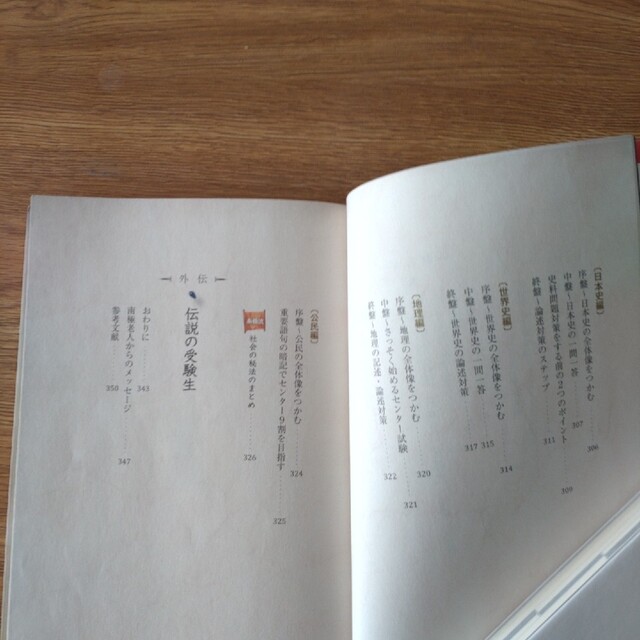 【日本史編】
序盤～日本史の全体像をつかむ……306
中盤～日本史の一問一答……307
史料問題対策をする前の2つのポイント……309
終盤～論述対策の4ステップ……311
【世界史編】
序盤～世界史の全体像をつかむ……314
中盤～世界史の一問一答……315
終盤～世界史の論述対策……317
【地理編】
序盤～地理の全体像をつかむ……320
中盤～さっそく始めるセンター試験……321
終盤～地理の記述・論述対策……322
【公民編】
序盤～公民の全体像をつかむ……324
重要語句の暗記でセンター9割を目指す……325
社会の秘技のまとめ……326
外伝
伝説の受験生
おわりに……343
南極老人からのメッセージ……347
参考文献……350